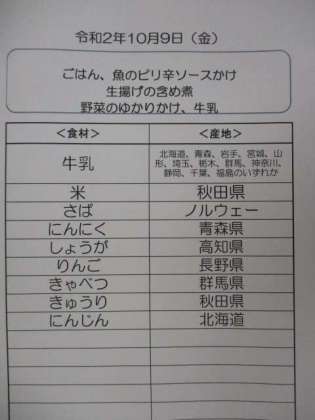 令和2年10月9日（金）
ごはん、魚のピリ辛ソースかけ
生揚げの含め煮
野菜のゆかりかけ、牛乳
＜食材＞ ＜産地＞
牛乳 北海道、青森、岩手、宮城、山
形、埼玉、栃木、群馬、神奈川、
静岡、千葉、福島のいずれか
米 秋田県
さば ノルウェー
にんにく 青森県
しょうが 高知県
りんご 長野県
きゃべつ 群馬県
きゅうり 秋田県
にんじん 北海道